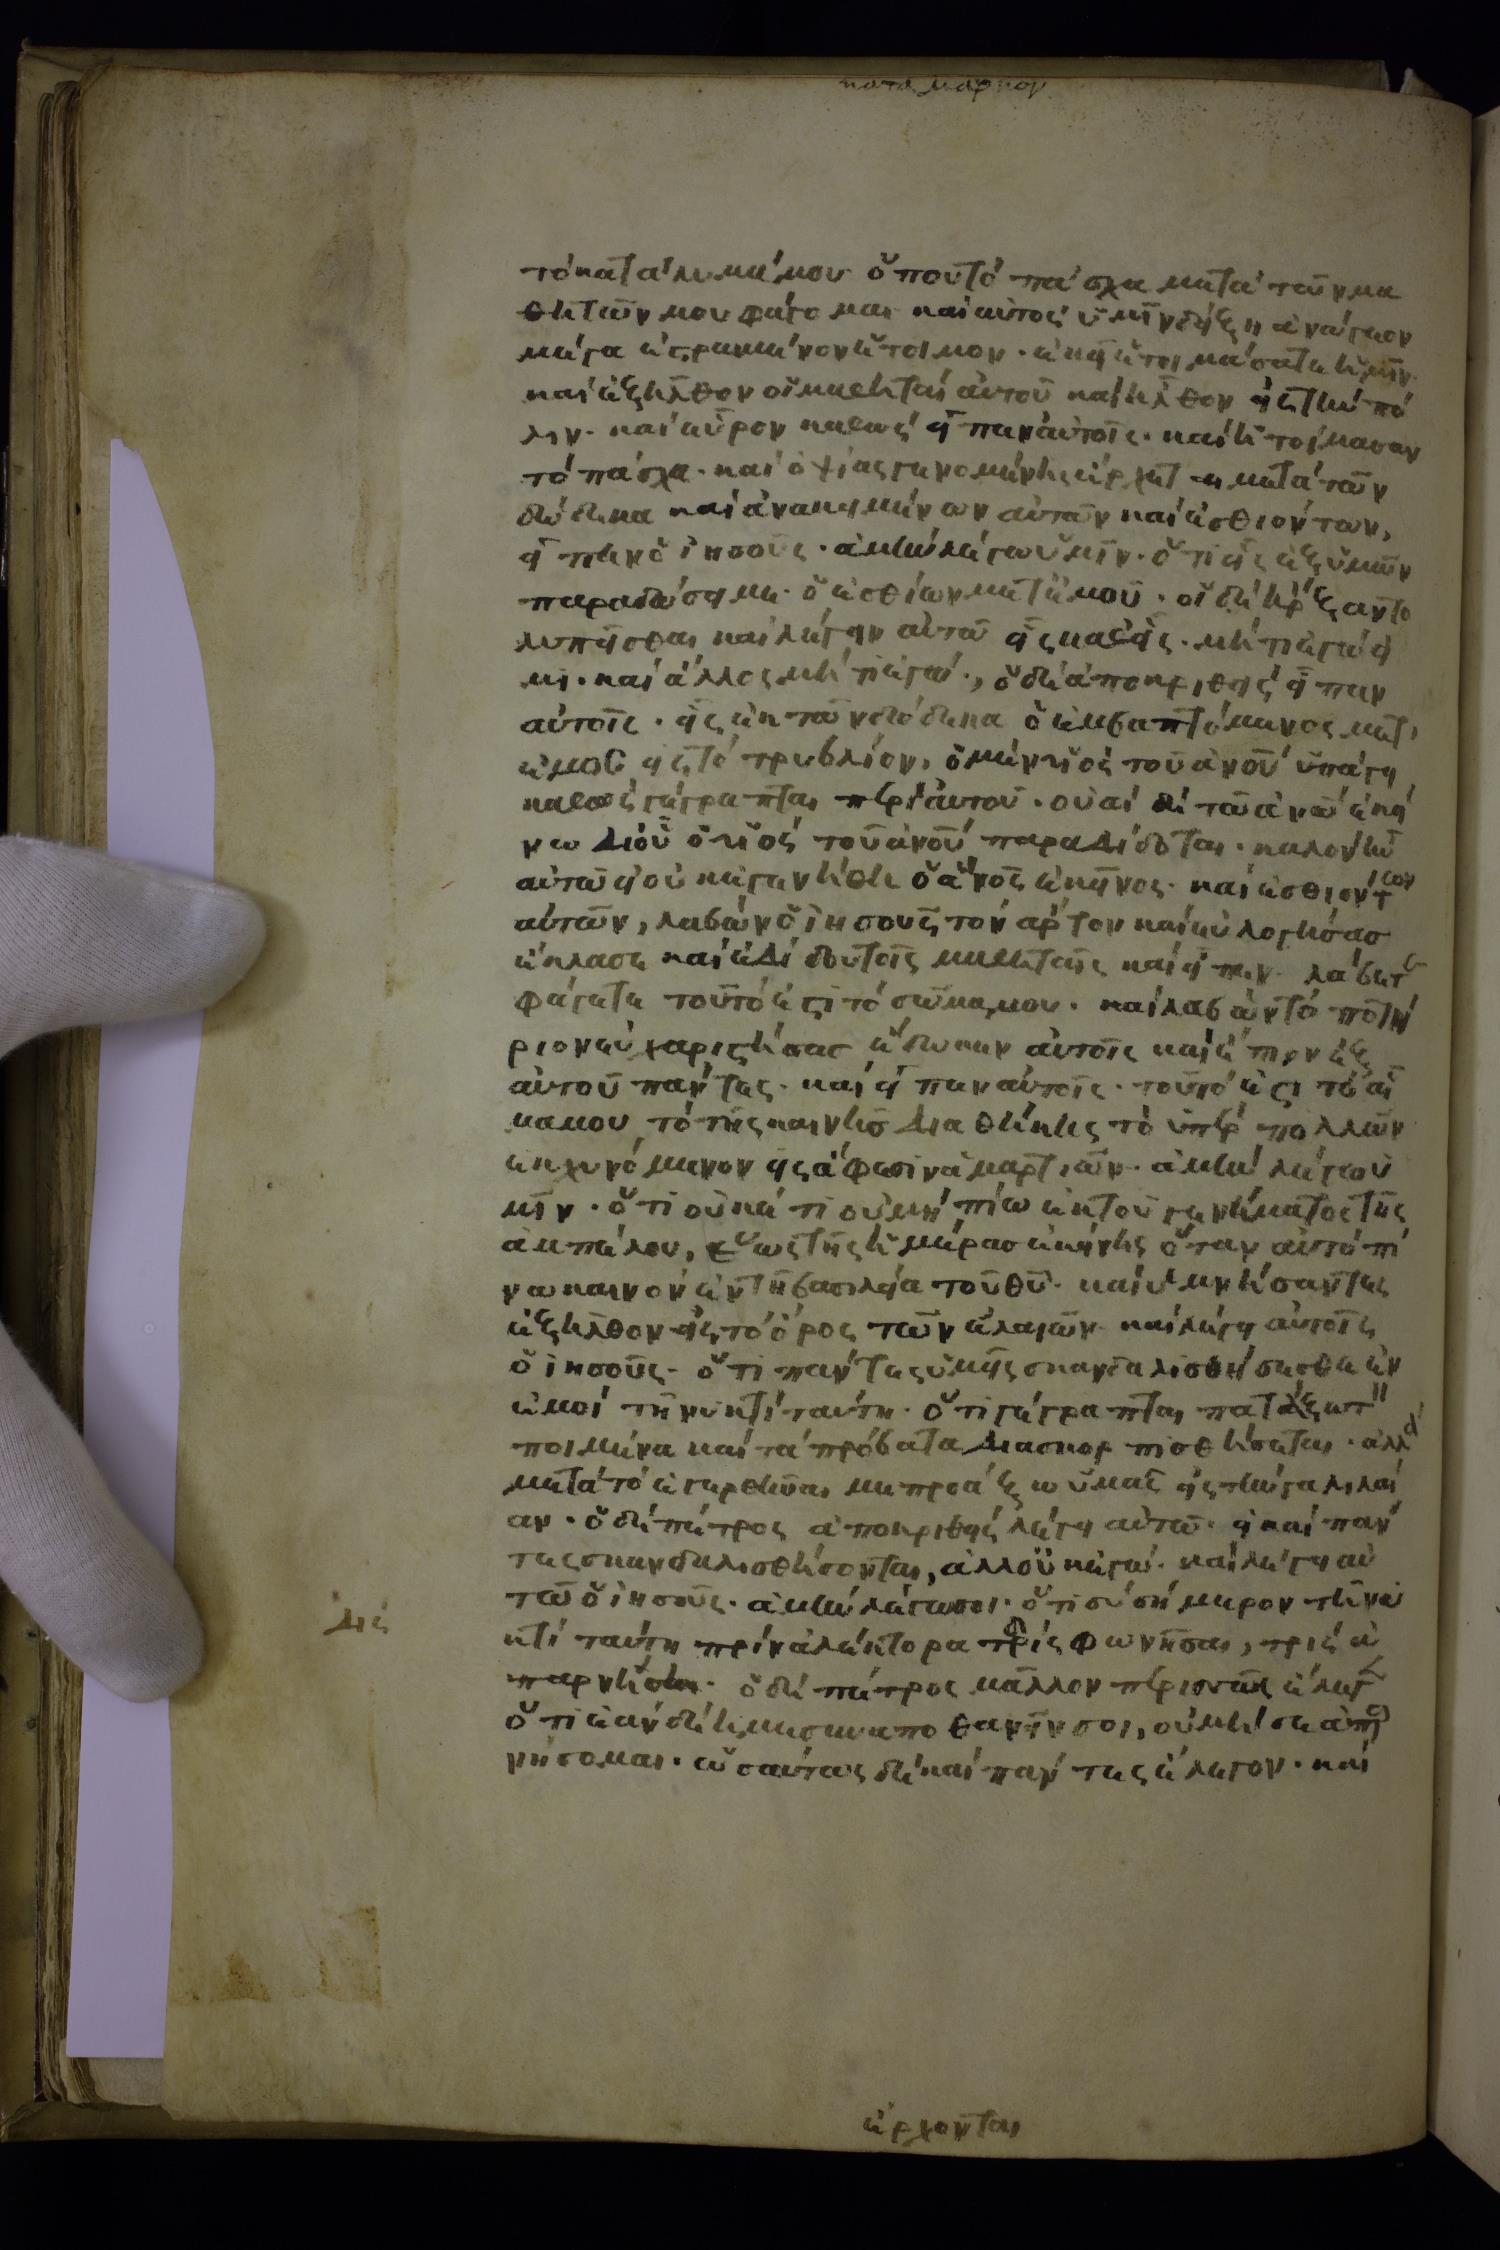 κατα μαρκον
τὸ κατάλυμά μου ὅπου τὸ πάσχα μετὰ τῶν μα
θητῶν μου φάγομαι καὶ αὐτὸς ὑμῖν δείξει ἀνάγεον
μέγα ἐστρωμένον ἕτοιμον· ἐκεῖ ἑτοιμάσατε ἡμῖν·
καὶ ἐξῆλθον οἱ μαθηταὶ αὐτοῦ καὶ ἦλθον εἰς τὴν πό
λιν· καὶ εὗρον καθὼς εἶπεν αὐτοῖς· καὶ ἡτοίμασαν
τὸ πάσχα· καὶ ὀψίας γενομένης ἔρχεται μετὰ τῶν
δώδεκα καὶ ἀνακειμένων αὐτῶν καὶ ἐσθιόντων,
εἶπεν ὁ ἰησοῦς· ἀμὴν λέγω ὑμῖν· ὅτι εἷς ἐξ ὑμῶν
παραδώσει με· ὁ ἐσθίων μετ' ἐμοῦ· οἱ δὲ ἤρξαντο
λυπεῖσθαι καὶ λέγειν αὐτῶ εἷς καθεῖς· μήτι ἐγώ εἰ
μι· καὶ ἄλλος μήτι ἐγώ·, ὁ δὲ ἀποκριθεὶς εἶπεν
αὐτοῖς· εἷς ἐκ τῶν δώδεκα ὁ ἐμβαπτόμενος μετ'
ἐμοῦ εἰς τὸ τρυβλίον, ὁ μὲν υἱὸς τοῦ ἀνοῦ ὑπάγει
καθὼς γέγραπται περὶ αὐτοῦ· οὐαὶ δὲ τῶ ἀνω ἐκεί
νω δι οὗ ὁ υἱὸς τοῦ ἀνοῦ παραδίδοται· καλὸν ἦν
αὐτῶ εἰ οὐκ ἐγεννήθη ὁ ἀνος ἐκεῖνος· καὶ ἐσθιόντων
αὐτῶν, λαβὼν ὁ ἰησοῦς τὸν ἄρτον καὶ εὐλογήσας
ἔκλασε καὶ ἐδίδου τοῖς μαθηταῖς καὶ εἶπεν· λάβετε
φάγετε τοῦτό ἐστι τὸ σῶμα μου· καὶ λαβὼν τὸ ποτή
ριον εὐχαριστήσας ἔδωκεν αὐτοῖς καὶ ἔπιον ἐξ
αὐτοῦ πάντες· καὶ εἶπεν αὐτοῖς· τοῦτό ἐστι τὸ αἷ
μα μου τὸ τῆς καινῆς διαθήκης τὸ ὑπὲρ πολλῶν
ἐκχυνόμενον εἰς ἄφεσιν ἁμαρτιῶν· ἀμὴν λέγω ὑ
μῖν· ὅτι οὐκέτι οὐ μὴ πίω ἐκ τοῦ γενήματος τῆς
ἀμπέλου, ἕως τῆς ἡμέρας ἐκείνης ὅταν αὐτὸ πί
νω καινὸν ἐν τῆ βασιλεία τοῦ θῦ· καὶ ὑμνήσαντες
ἐξῆλθον εἰς τὸ ὄρος τῶν ἐλαιῶν· καὶ λέγει αὐτοῖς
ὁ ἰησοῦς· ὅτι πάντες ὑμεῖς σκανδαλισθήσεσθε ἐν
ἐμοὶ τῆ νυκτὶ ταύτη· ὅτι γέγραπται πατάξω τὸν
ποιμένα καὶ τὰ πρόβατα διασκορπισθήσεται· ἀλλὰ
μετὰ τὸ ἐγερθῆναι με προάξω ὑμᾶς εἰς τὴν γαλιλαί
αν· ὁ δὲ πέτρος ἀποκριθεὶς λέγει αὐτῶ· εἰ καὶ πάν
τες σκανδαλισθήσονται, ἀλλ οὐκ ἐγώ· καὶ λέγει αὐ
τῶ ὁ ἰησοῦς· ἀμὴν λέγω σοι· ὅτι σὺ σήμερον τῆ νυ
κτὶ ταύτη πρὶν ἀλέκτορα τρὶς φωνῆσαι, τρὶς ἀ
παρνήση· ὁ δὲ πέτρος μᾶλλον περισσῶς ἔλεγε
ὅτι ἐὰν δέη με συναποθανεῖν σοι, οὐ μή σε ἀπαρ
νήσομαι· ὡσαύτως δὲ καὶ πάντες ἔλεγον· καὶ
δὶς
ἔρχονται